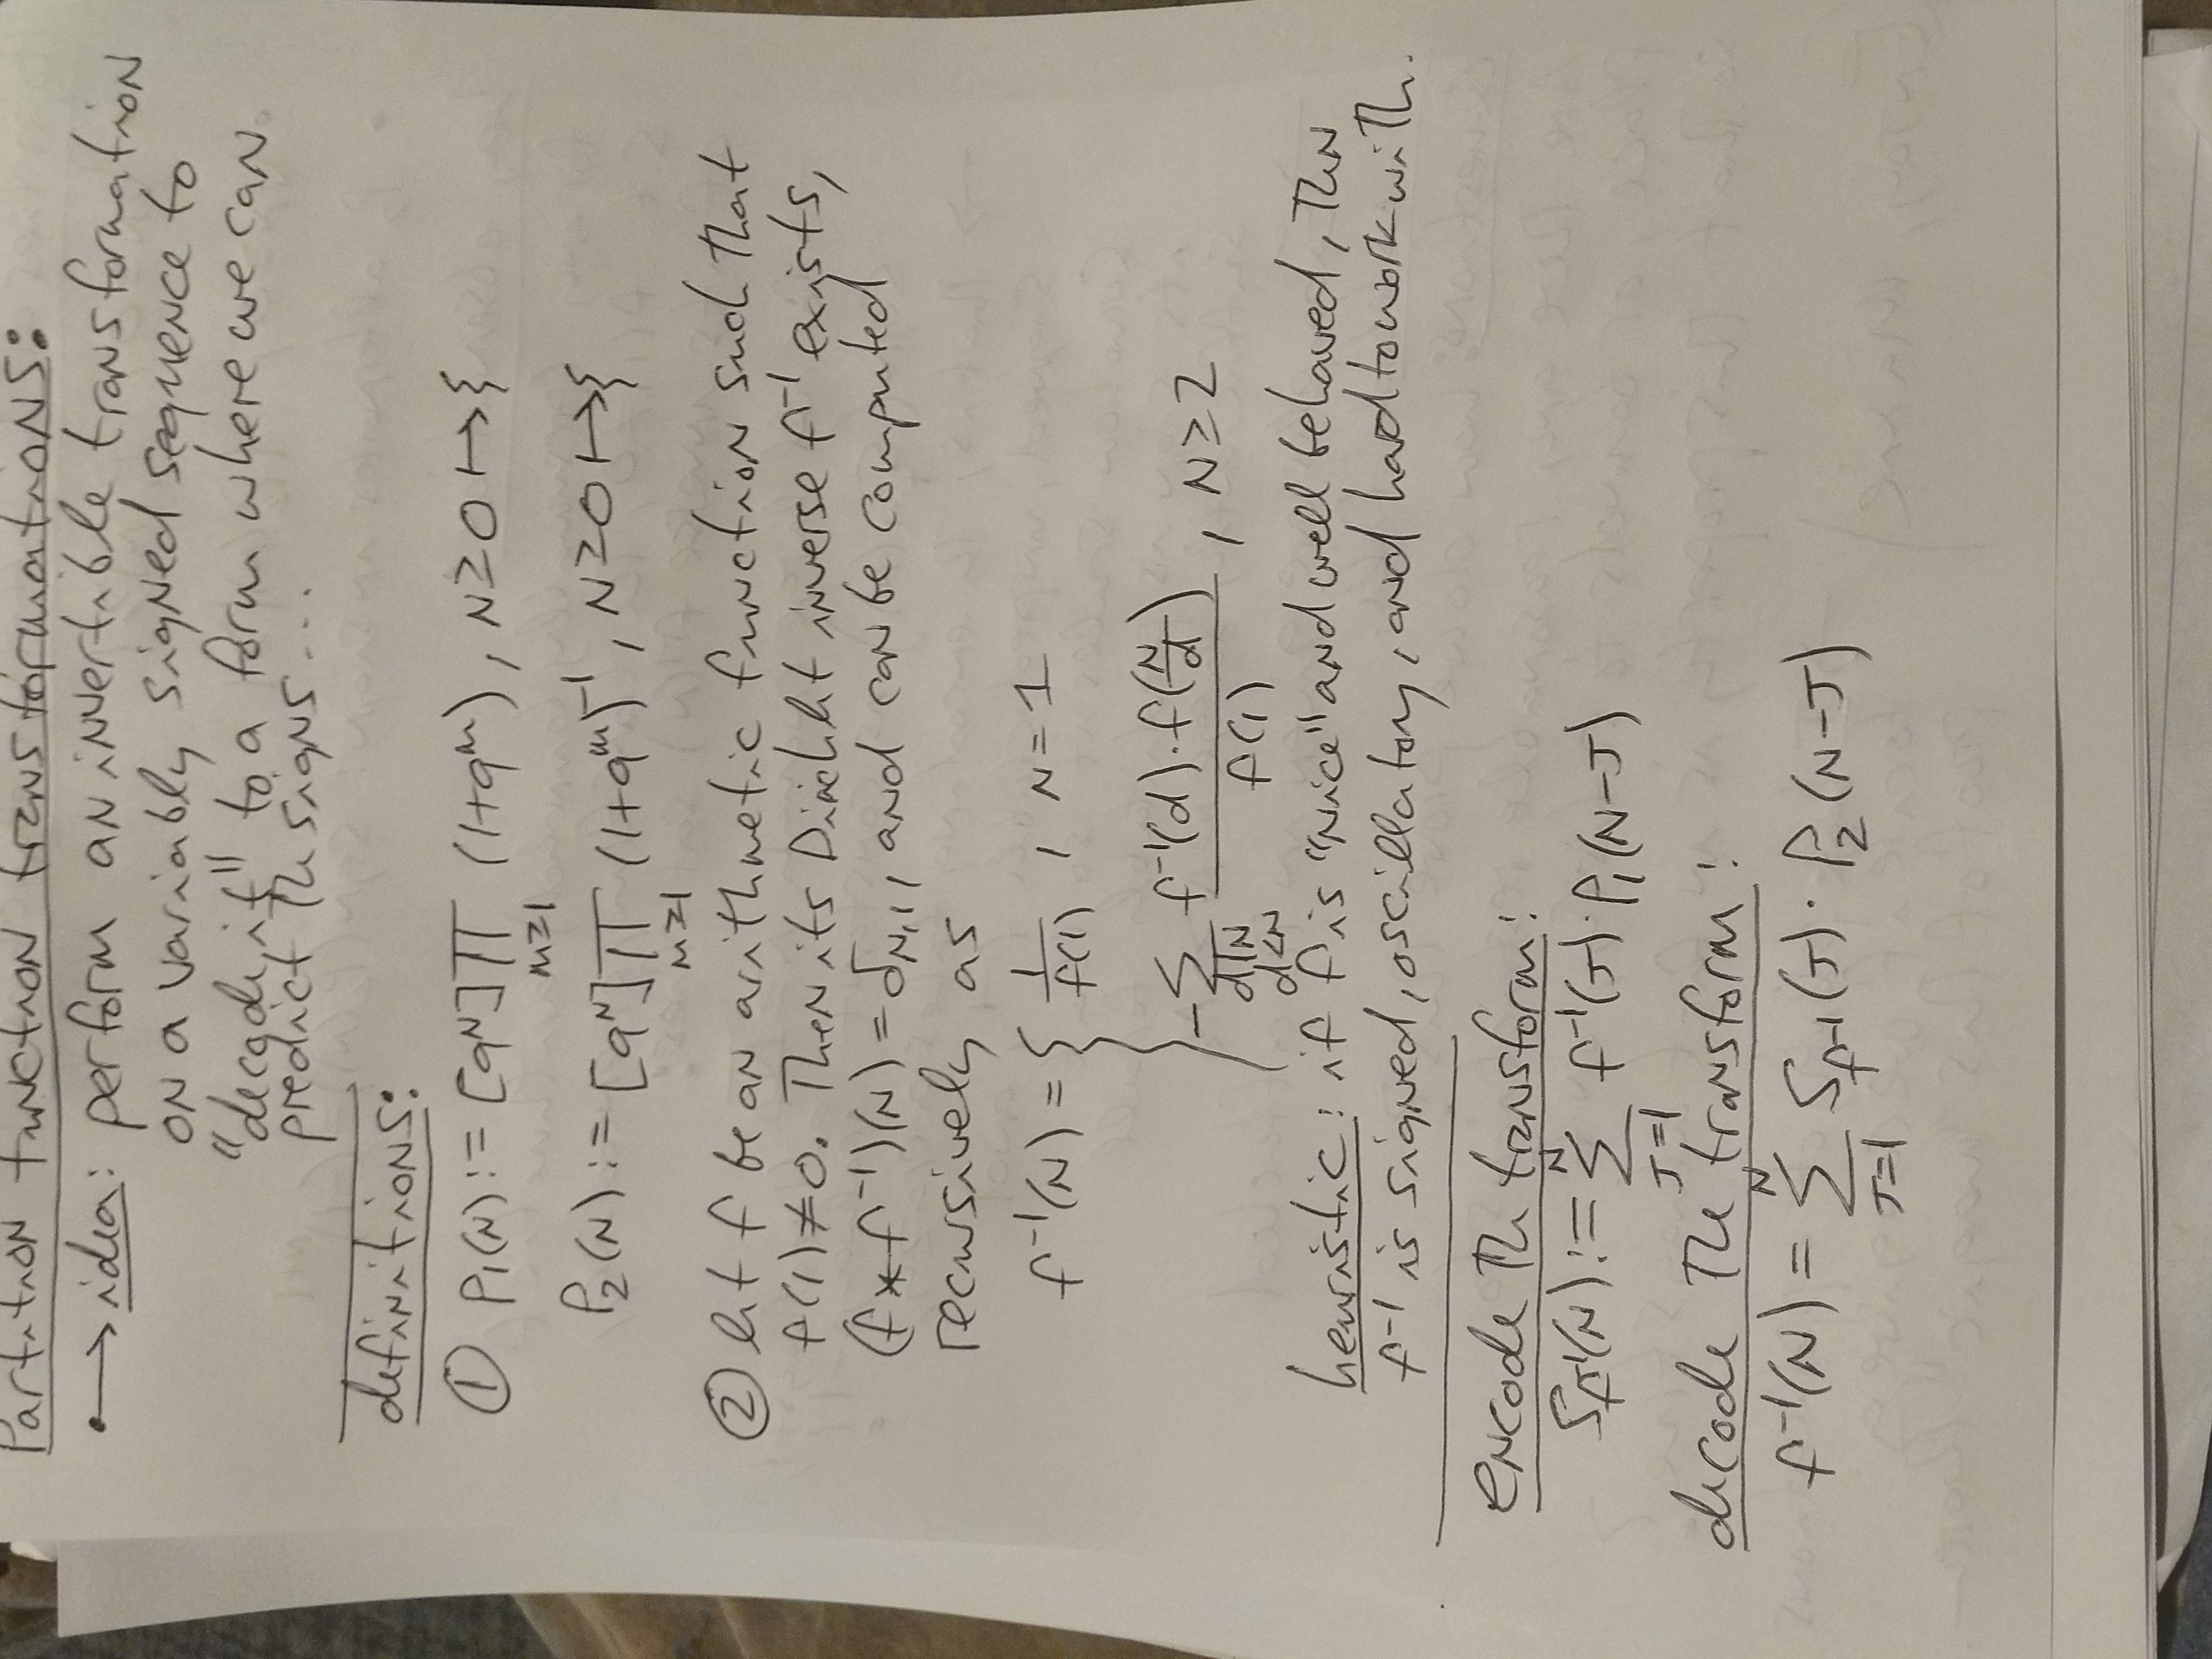 Partition function transformations:
•→ idea: perform an invertible transformation
on a variably signed sequence to
"decode it" to a form where we can
predict the signs...
definitions:
① P₁(N) := [q^N] ∏_{m≥1} (1+q^m), N≥0 ↦ {
P₂(N) := [q^N] ∏_{m≥1} (1+q^m)^{-1}, N≥0 ↦ {
② let f be an arithmetic function such that
f(1)≠0. Then its Dirichlet inverse f^{-1} exists,
(f*f^{-1})(N) = δ_{N,1}, and can be computed
recursively as
f^{-1}(N) = { 1/f(1), N=1
-∑_{d|N, d<N} f^{-1}(d)·f(N/d) / f(1), N≥2
heuristic: if f is "nice" and well behaved, then
f^{-1} is signed, oscillatory, and hard to work with.
encode the transform:
S_{f^{-1}}(N) := ∑_{J=1}^{N} f^{-1}(J)·P₁(N-J)
decode the transform:
f^{-1}(N) = ∑_{J=1}^{N} S_{f^{-1}}(J)·P₂(N-J)